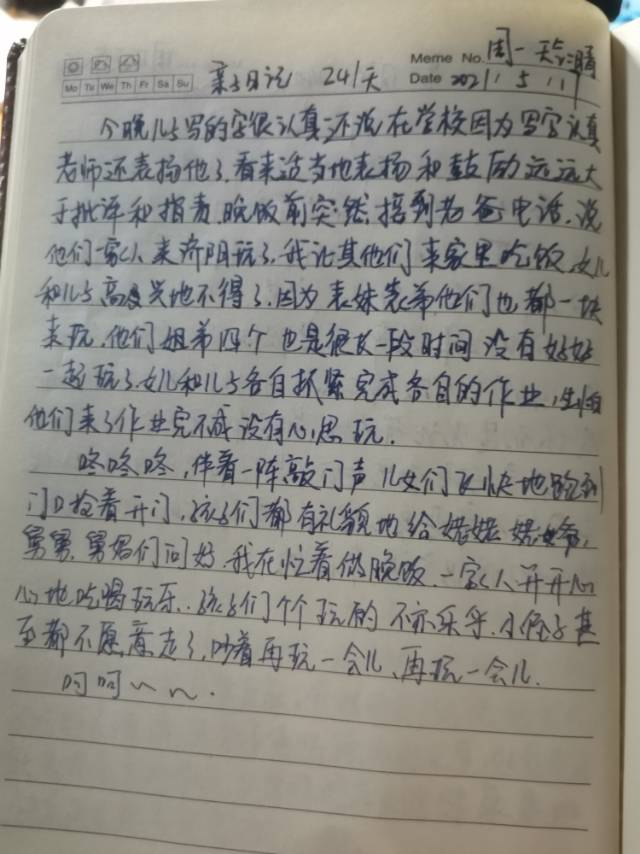 Meme No. 周一 天气:晴
Mo Tu We Th Fr Sa Su 亲子日记 241天 Date 2021.5.17
今晚儿子写的字很认真,还说在学校因为写字认真
老师还表扬他了.看来适当地表扬和鼓励远远大
于批评和指责.晚饭前突然接到老爸电话,说
他们一家人来济阳玩了.我让其他们来家里吃饭,女儿
和儿子高兴地不得了.因为表妹表弟他们也都一块
来玩.他们姐弟四个也是很长一段时间没有好好
一起玩了.女儿和儿子各自抓紧完成各自的作业,生怕
他们来了作业完不成没有心思玩.
咚咚咚,伴着一阵敲门声儿女们飞快地跑到
门口抢着开门.孩子们都有礼貌地给姥姥姥爷,
舅舅,舅妈们问好.我在忙着做晚饭.一家人开开心
心地吃喝玩乐.孩子们个个玩的不亦乐乎.小侄子甚
至都不愿意走了,吵着再玩一会儿、再玩一会儿.
呵呵~~.